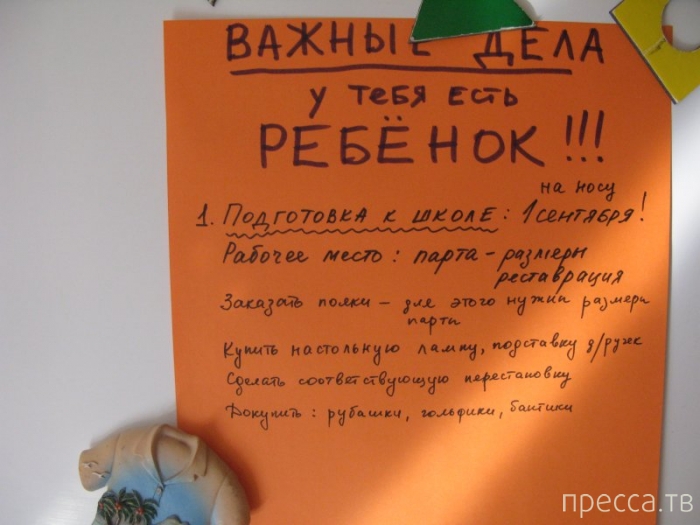 ВАЖНЫЕ ДЕЛА
у тебя есть
РЕБЁНОК!!!
на носу
1. Подготовка к школе: 1 сентября!
Рабочее место: парта – размеры
реставрация
Заказать полки – для этого нужны размеры
парты
Купить настольную лампу, подставку д/ручек
Сделать соответствующую перестановку
Докупить: рубашки, гольфики, бантики
пресса.тв